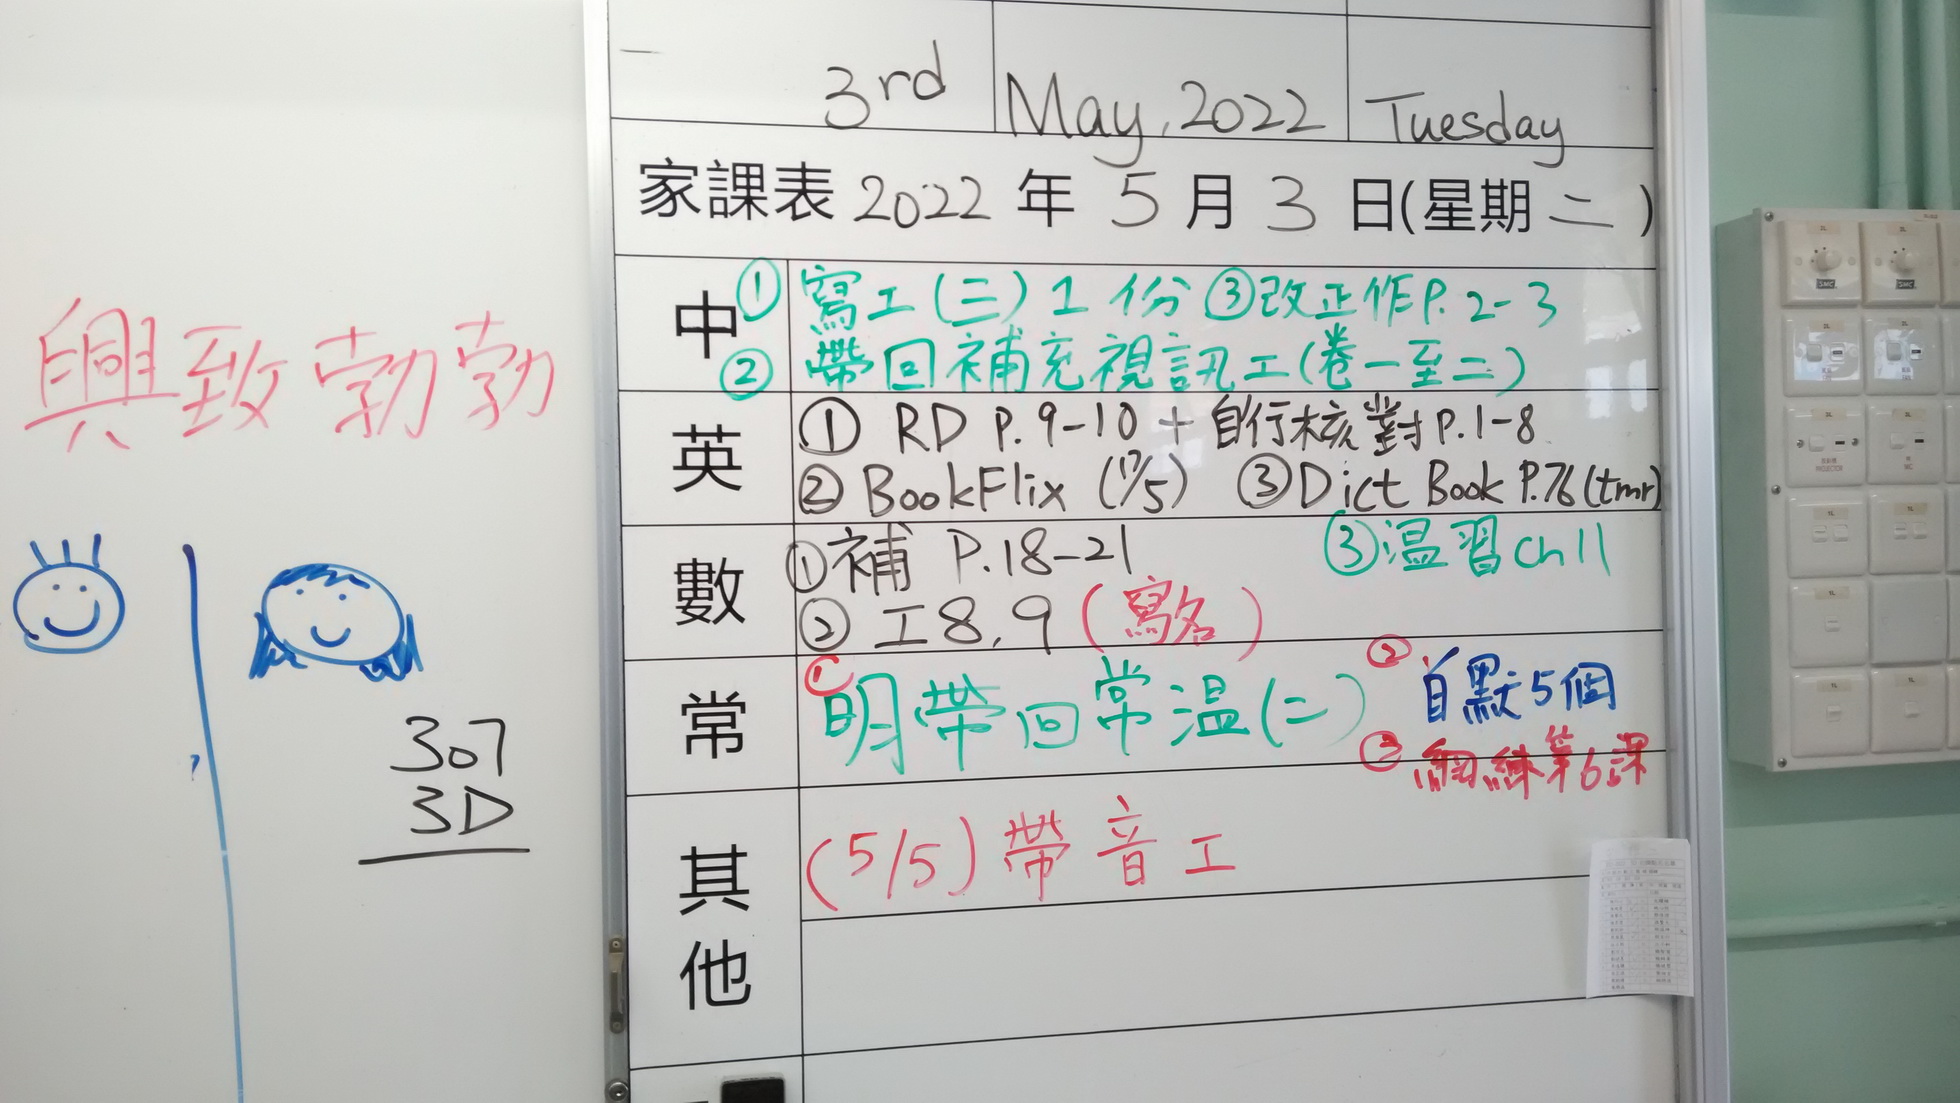 3rd May, 2022 Tuesday
家課表 2022 年 5 月 3 日(星期 二 )
中 ① 寫工(三)1份 ③改正作P.2-3
② 帶回補充視訊工(卷一至二)
英 ① RD P.9-10 + 自行核對P.1-8
② BookFlix (17/5) ③Dict Book P.76(tmr)
數 ①補 P.18-21 ③温習ch11
② 工8,9(寫名)
常 ① 明帶回常温(二) ② 自默5個
③ 網練第6課
其他 (5/5)帶音工
興致勃勃
307
3D